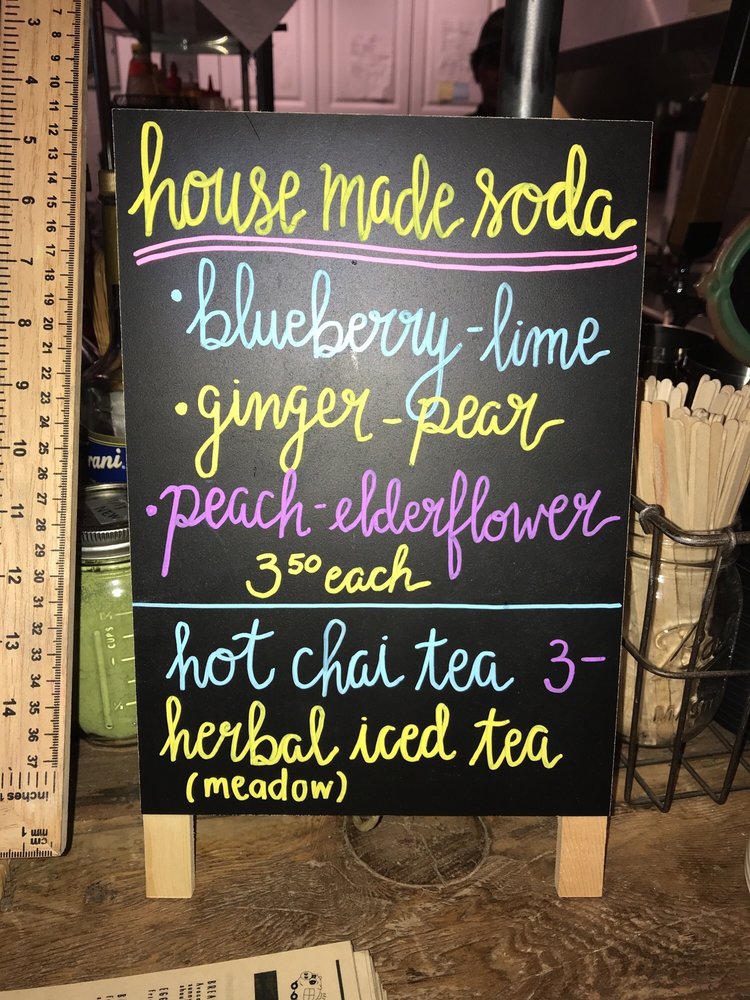 house made soda
• blueberry-lime
• ginger-pear
• peach-elderflower
3⁵⁰ each
hot chai tea 3-
herbal iced tea
(meadow)
rani
3
4
5
6
7
8
9
10
11
12
13
14
inches
7
8
9
10
11
12
13
14
15
16
17
18
19
20
21
22
23
24
25
26
27
28
29
30
31
32
33
34
35
36
37
cm
mm
1